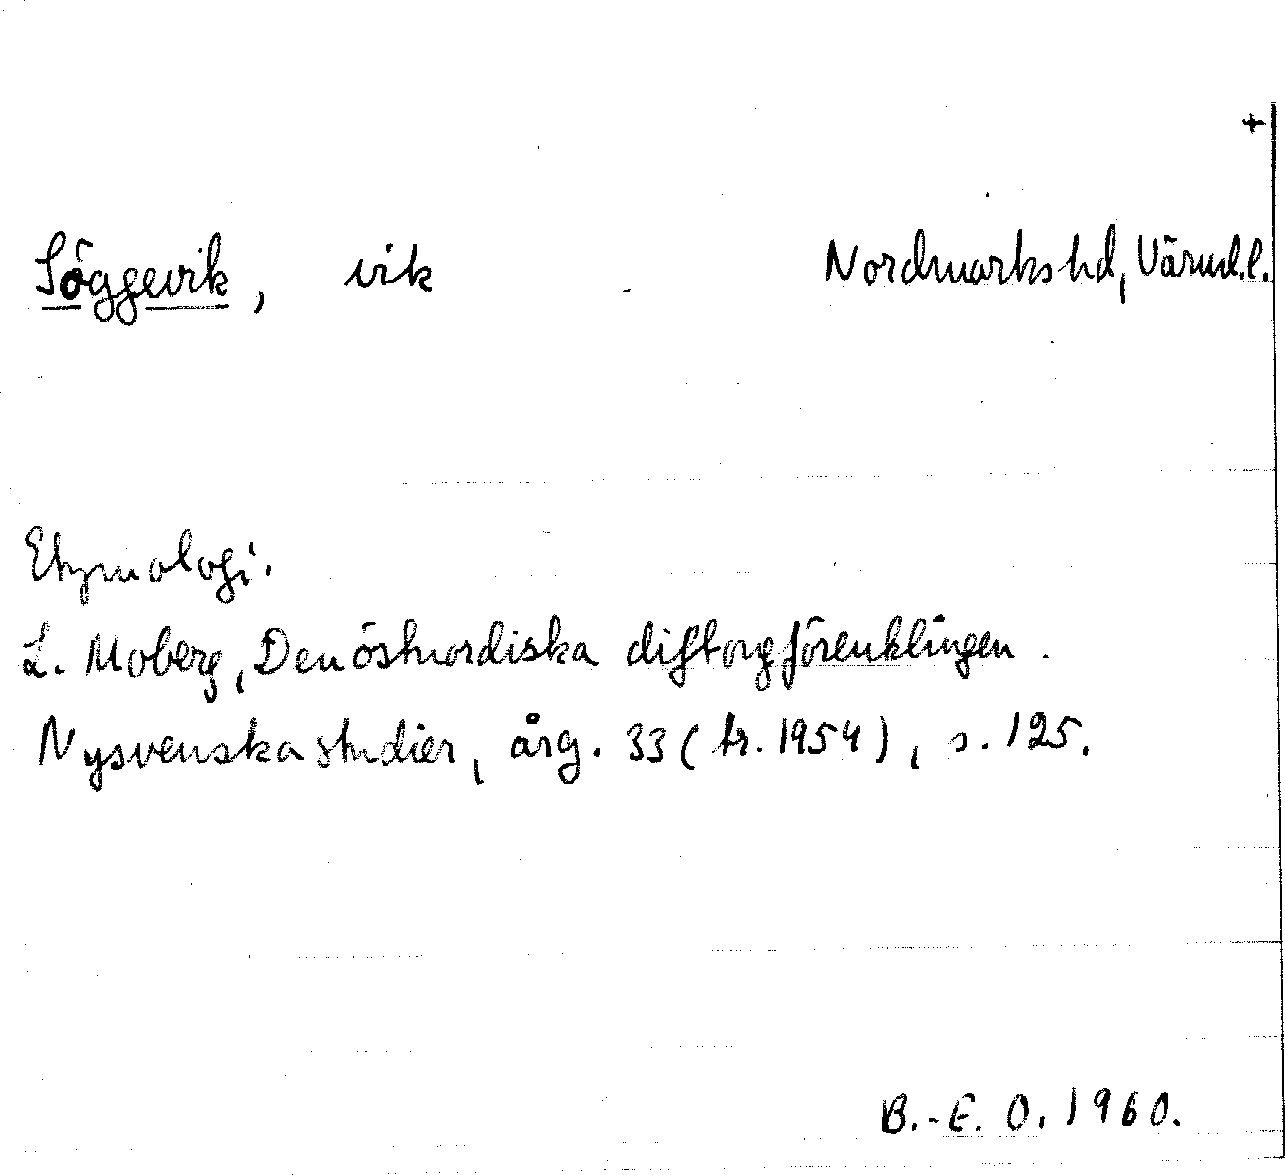 +
Söggevik, vik Nordmarks hd, Värml.l.
Etymologi.
L. Moberg, Den östnordiska diftongförenklingen.
Nysvenska studier, årg. 33 (tr. 1954), s. 125.
B.-E. O. 1960.